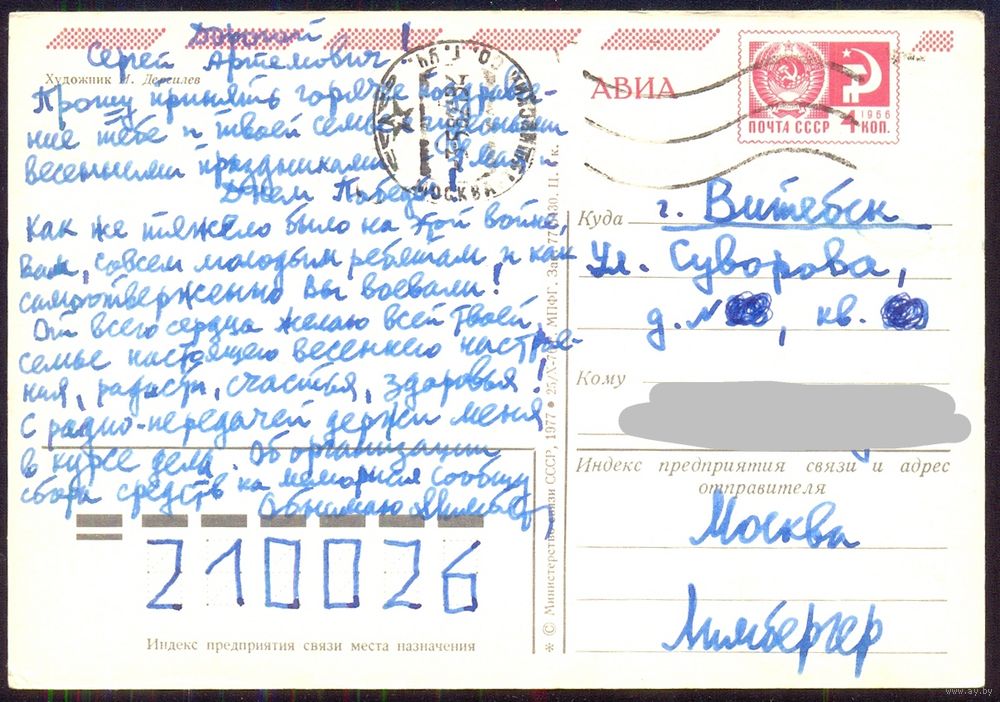 Дорогой
Сергей Артемович!
Художник Н. Дергилев
Прошу принять горячее поздравле-
ние тебе и твоей семье с
весенними праздниками 1 Мая и
Днем Победы!
Как же тяжело было на этой войне,
Вам, совсем молодым ребятам и как
самоотверженно Вы воевали!
От всего сердца желаю всей твоей
семье настоящего весеннего настрое-
ния, радости, счастья, здоровья!
С радио-передачей держи меня
в курсе дела. Об организации
сбора средств на мемориал сообщу
Обнимаю
210026
Индекс предприятия связи места назначения
МОСКВА
* © Министерство связи СССР, 1977 • 25/X-76. МПФГ. Зак. Ц. к.
АВИА
1966
ПОЧТА СССР 4 КОП.
Куда г. Витебск
ул. Суворова,
д. №, кв.
Кому
Индекс предприятия связи и адрес
отправителя
Москва
Лимбергер
www.ay.by